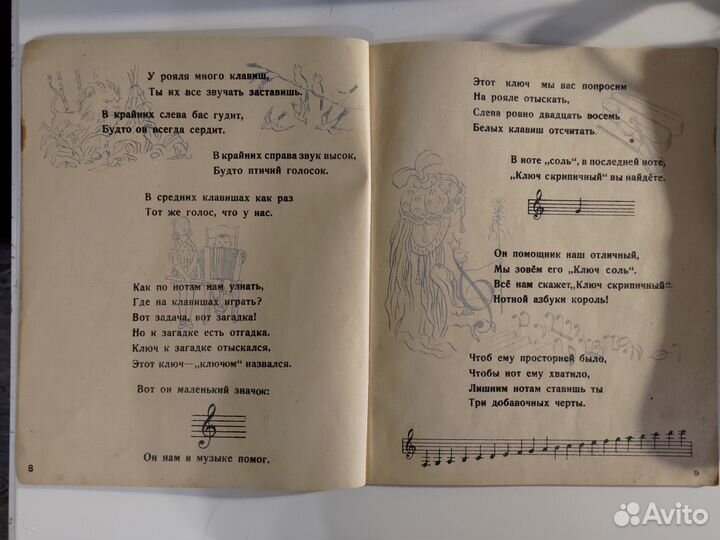 У рояля много клавиш,
Ты их все звучать заставишь.
В крайних слева бас гудит,
Будто он всегда сердит.
В крайних справа звук высок,
Будто птичий голосок.
В средних клавишах как раз
Тот же голос, что у нас.
Как по нотам нам узнать,
Где на клавишах играть?
Вот задача, вот загадка!
Но к загадке есть отгадка.
Ключ к загадке отыскался,
Этот ключ—„ключом“ назвался.
Вот он маленький значок:
Он нам в музыке помог.
8
Этот ключ мы вас попросим
На рояле отыскать,
Слева ровно двадцать восемь
Белых клавиш отсчитать.
В ноте „соль“, в последней ноте,
„Ключ скрипичный“ вы найдёте.
Он помощник наш отличный,
Мы зовём его „Ключ соль“.
Всё нам скажет „Ключ скрипичный“
Нотной азбуки король!
Чтоб ему просторней было,
Чтобы нот ему хватило,
Лишним нотам ставишь ты
Три добавочных черты.
9
Avito